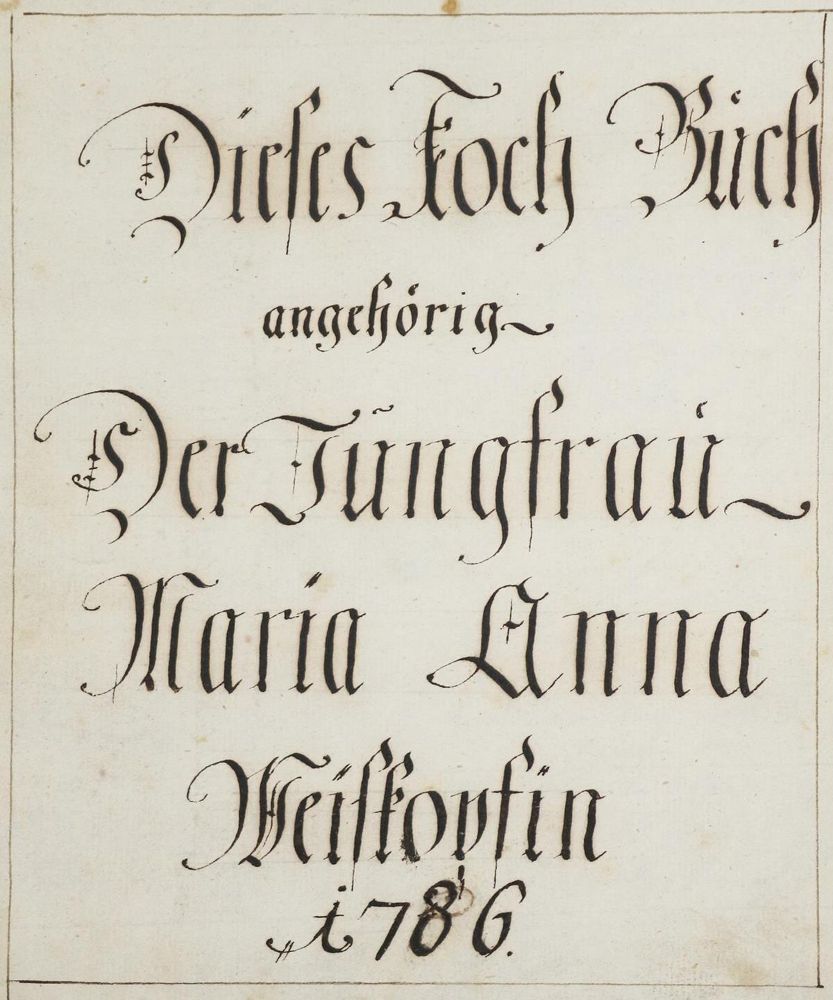 Dieses Koch Buch
angehörig
Der Jungfrau
Maria Anna
Weiskopfin
1786.